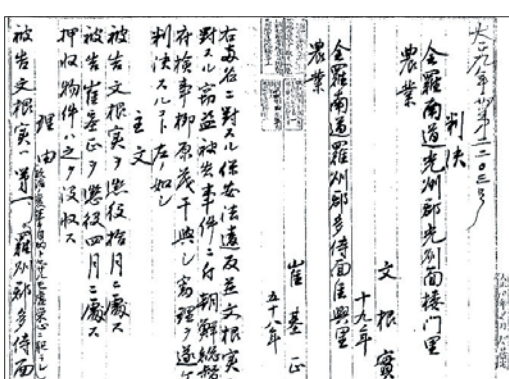 大正九年刑第一二〇三号
判決
全羅南道光州郡光州面楼门里
農業
文根實
十九年
全羅南道羅州郡多侍面佳興里
農業
崔基正
五十八年
右両名ニ對スル保安法違反並文根実ニ
對スル窃盗被告事件ニ付朝鮮総督
府検事柳原茂干與シ審理ヲ遂ケ
判決スルコト左ノ如シ
主文
被告文根実ヲ懲役拾月ニ處ス
被告崔基正ヲ懲役四月ニ處ス
押収物件ハ之ヲ没収ス
理由
被告文根実ハ第一、羅州郡多侍面